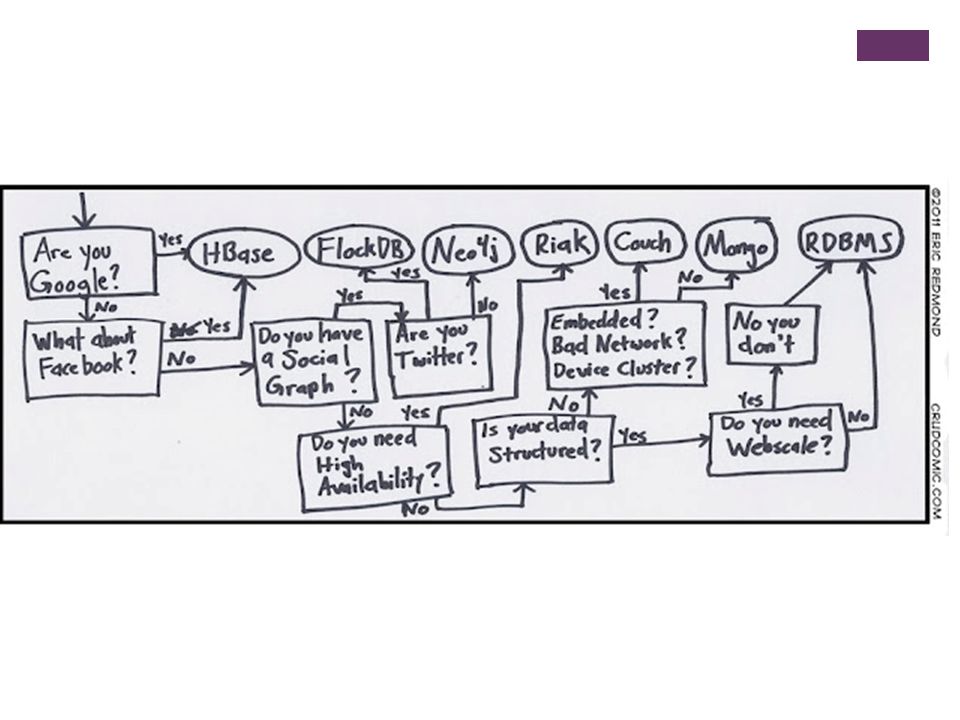 Are you
Google?
Yes
HBase
FlockDB
Neo4j
Riak
Couch
Mongo
RDBMS
No
What about
Facebook?
Yes
No
Do you have
a Social
Graph?
Yes
Are you
Twitter?
Yes
No
No
Do you need
High
Availability?
Yes
No
Is your data
Structured?
No
Yes
Embedded?
Bad Network?
Device Cluster?
Yes
No
Do you need
Webscale?
Yes
No
No you
don't
©2011 ERIC REDMOND
CRUDCOMIC.COM